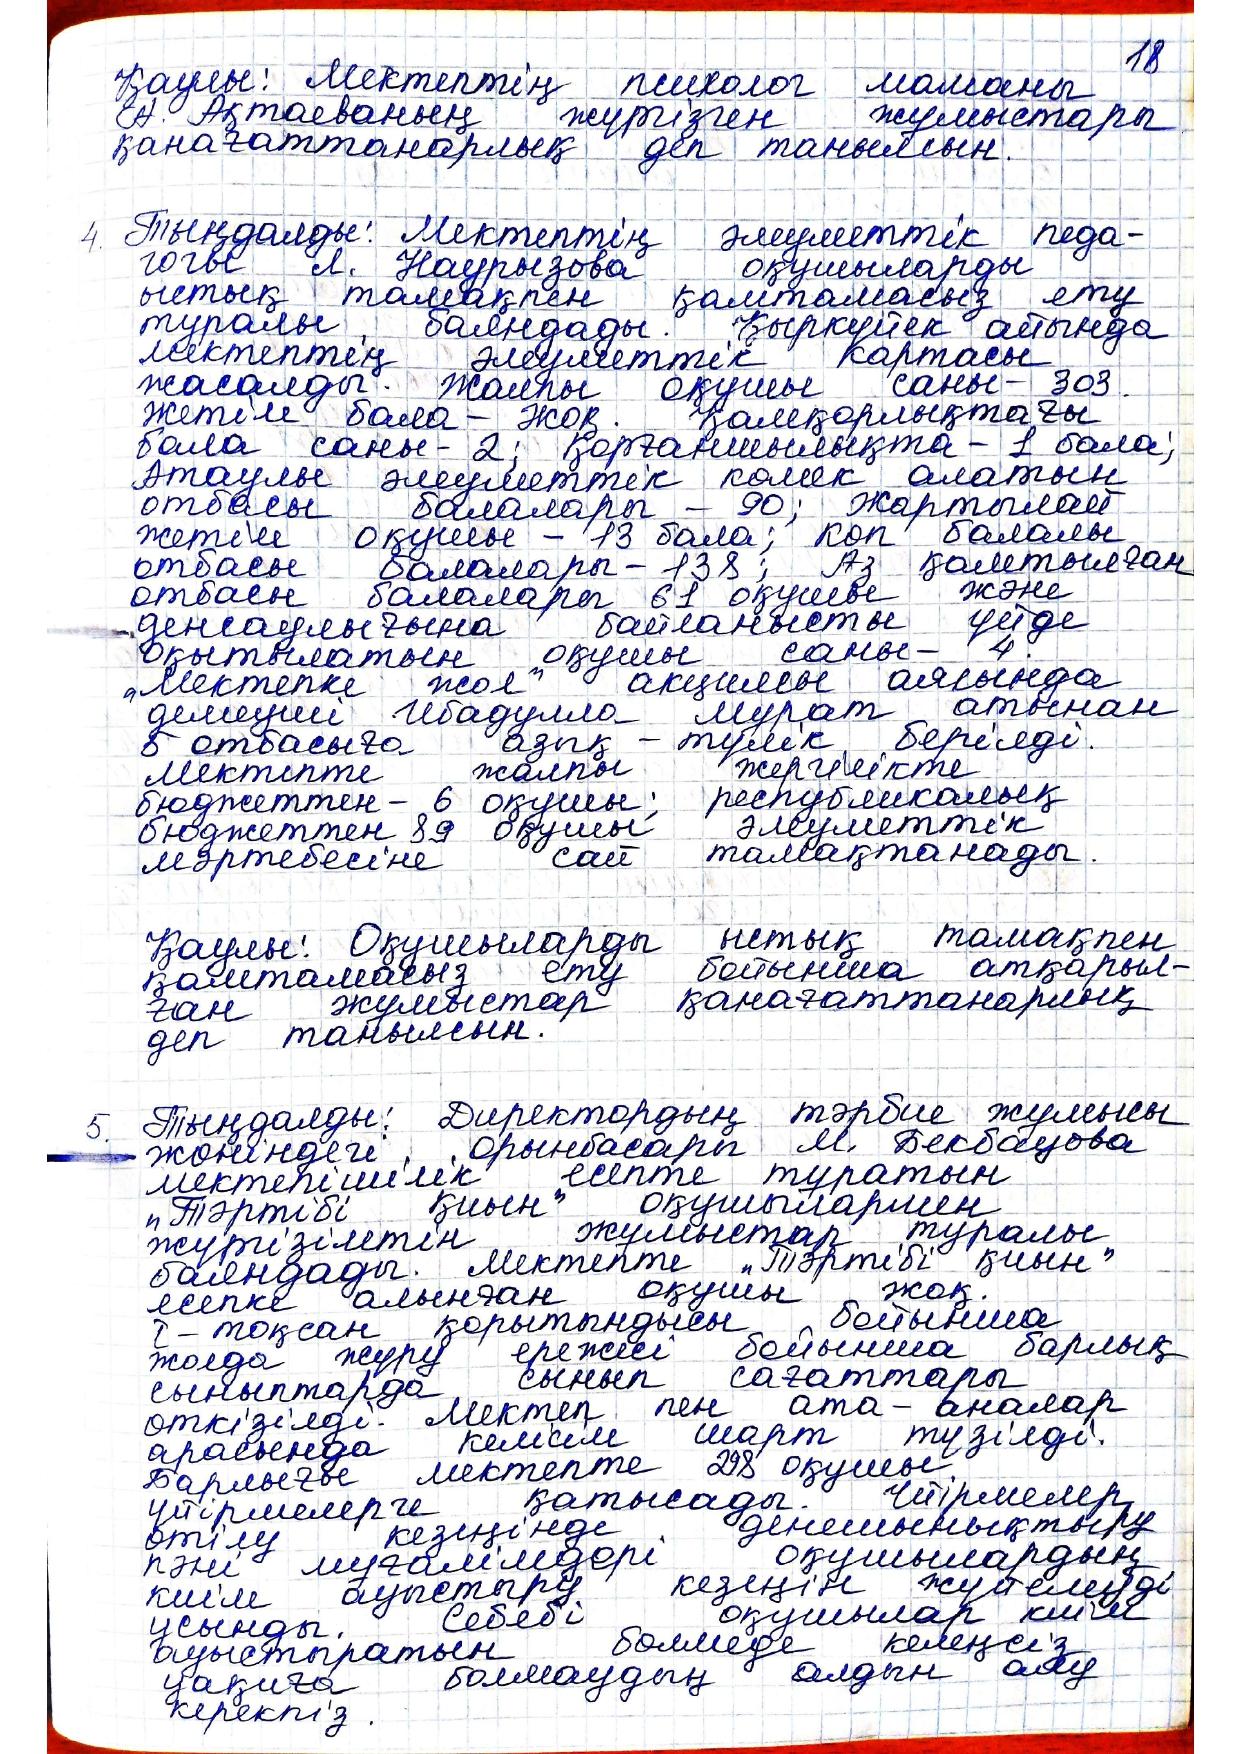 18
Қаулы: Мектептің психолог маманы
А. Ақтаеваның жүргізген жұмыстары
қанағаттанарлық деп танылсын.
4. Тыңдалды: Мектептің әлеуметтік педа-
гогы Л. Наурызова оқушыларды
ыстық тамақпен қамтамасыз ету
туралы баяндады. Қыркүйек айында
мектептің әлеуметтік картасы
жасалды. Жалпы оқушы саны - 303.
Жетім бала - жоқ. Қамқорлықтағы
бала саны - 2; Қорғаншылықта - 1 бала;
Атаулы әлеуметтік көмек алатын
отбасы балалары - 90; Жартылай
жетім оқушы - 13 бала; Көп балалы
отбасы балалары - 138; Аз қамтылған
отбасы балалары 61 оқушы және
денсаулығына байланысты үйде
оқытылатын оқушы саны - 4.
„Мектепке жол” акциясы аясында
демеуші Ибадулла Мурат атынан
5 отбасыға азық - түлік берілді.
Мектепте жалпы жергілікте
бюджеттен - 6 оқушы; республикалық
бюджеттен 89 оқушы әлеуметтік
мәртебесіне сай тамақтанады.
Қаулы: Оқушыларды ыстық тамақпен
қамтамасыз ету бойынша атқарыл-
ған жұмыстар қанағаттанарлық
деп танылсын.
5. Тыңдалды: Директордың тәрбие жұмысы
жөніндегі орынбасары М. Бекбауова
мектепішілік есепте тұратын
„Тәртібі қиын” оқушылармен
жүргізілетін жұмыстар туралы
баяндады. Мектепте „Тәртібі қиын”
есепке алынған оқушы жоқ.
I - тоқсан қорытындысы бойынша
жолда жүру ережесі бойынша барлық
сыныптарда сынып сағаттары
өткізілді. Мектеп пен ата - аналар
арасында келісім шарт түзілді.
Барлығы мектепте 298 оқушы
үйірмелерге қатысады. Үйірмелер
өтілу кезеңінде денешынықтыру
пәні мұғалімдері оқушылардың
киім ауыстыру кезеңін жүйелеуді
ұсынды. Себебі оқушылар киім
ауыстыратын бөлмеде келеңсіз
уақиға болмаудың алдын алу
керекпіз.